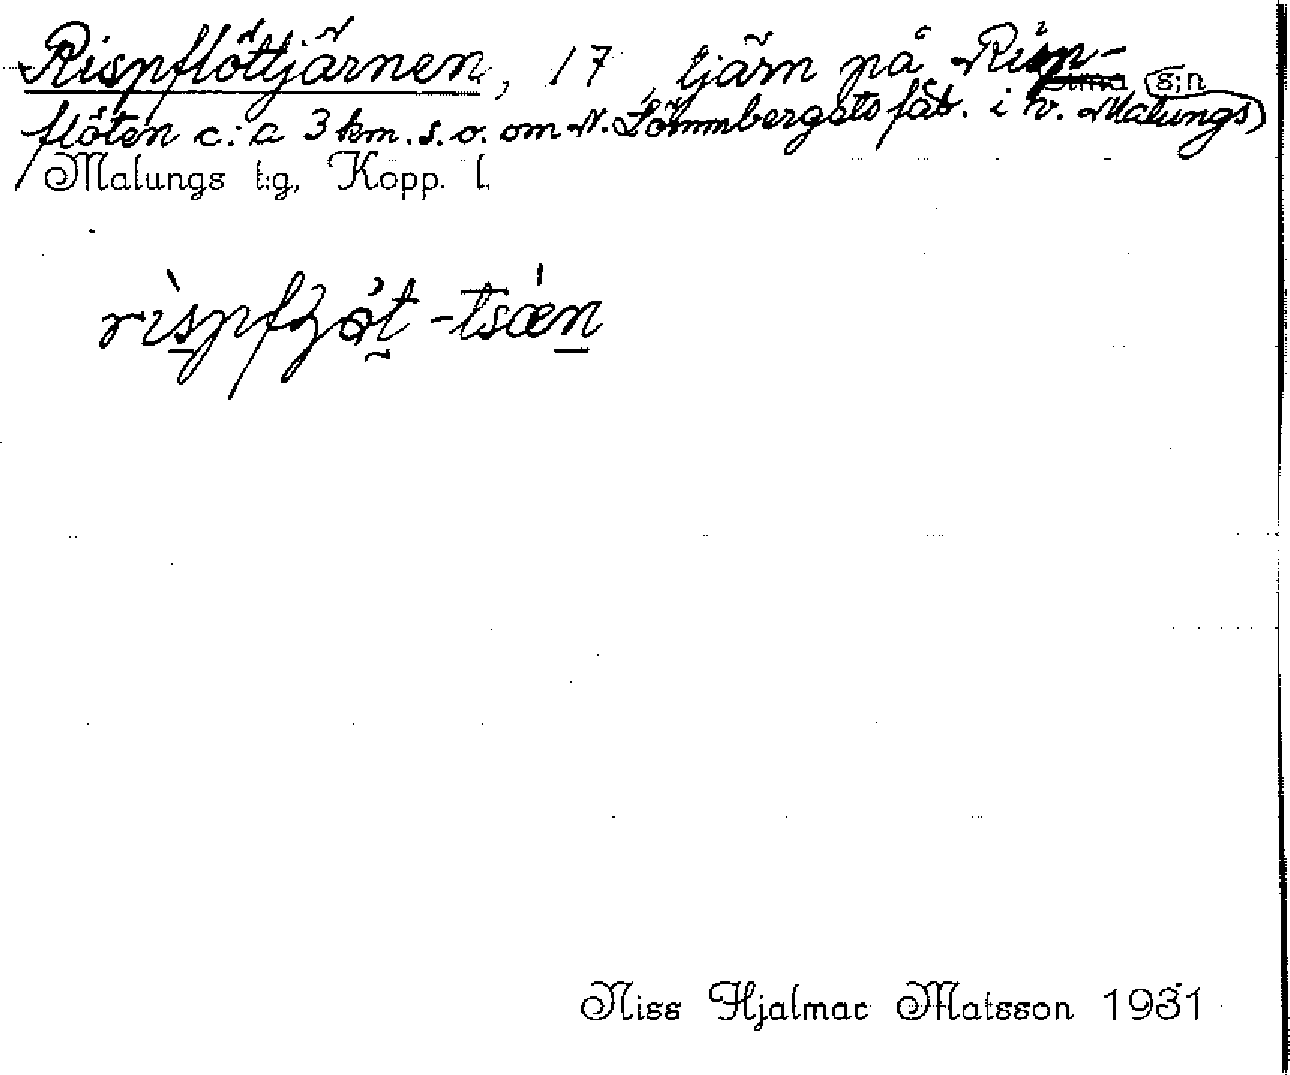 Rispflöttjärnen, 17, tjärn på Risp-
flöten c:a 3 km. s.o. om N. Lömmbergets fäb. i v. Malungs s:n
Malungs t:g, Kopp. l.
rìspfʒǿt-tsæ̍n
Niss Hjalmar Matsson 1931